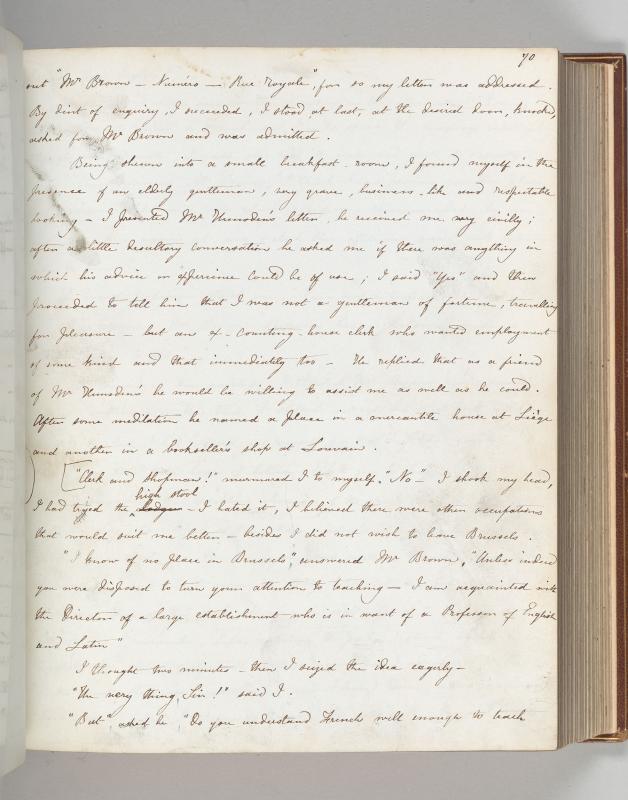 70
out "Mr Brown — Numéro — Rue Royale", for so my letter was addressed.
By dint of enquiry, I succeeded, I stood at last, at the desired door, knocked,
asked for Mr Brown and was admitted.
Being shewn into a small breakfast-room, I found myself in the
presence of an elderly gentleman, very grave, business-like and respectable
looking — I presented Mr Hunsden's letter, he received me very civilly;
after a little desultory conversation he asked me if there was anything in
which his advice or experience could be of use; I said "Yes" and then
proceeded to tell him that I was not a gentleman of fortune, travelling
for pleasure — but an ex-counting-house clerk who wanted employment
of some kind and that immediately too — He replied that as a friend
of Mr Hunsden's he would be willing to assist me as well as he could.
After some meditation he named a place in a mercantile house at Liège
and another in a bookseller's shop at Louvain.
"Clerk and shopman!" murmured I to myself. "No" — I shook my head,
high stool
I had tryed the — I hated it, I believed there were other occupations
that would suit me better — besides I did not wish to leave Brussels.
"I know of no place in Brussels", answered Mr Brown, "Unless indeed
you were disposed to turn your attention to teaching — I am acquainted with
the Director of a large establishment who is in want of a Professor of English
and Latin"
I thought two minutes — then I seized the idea eagerly —
"The very thing, Sir!" said I.
"But", asked he, "Do you understand French well enough to teach